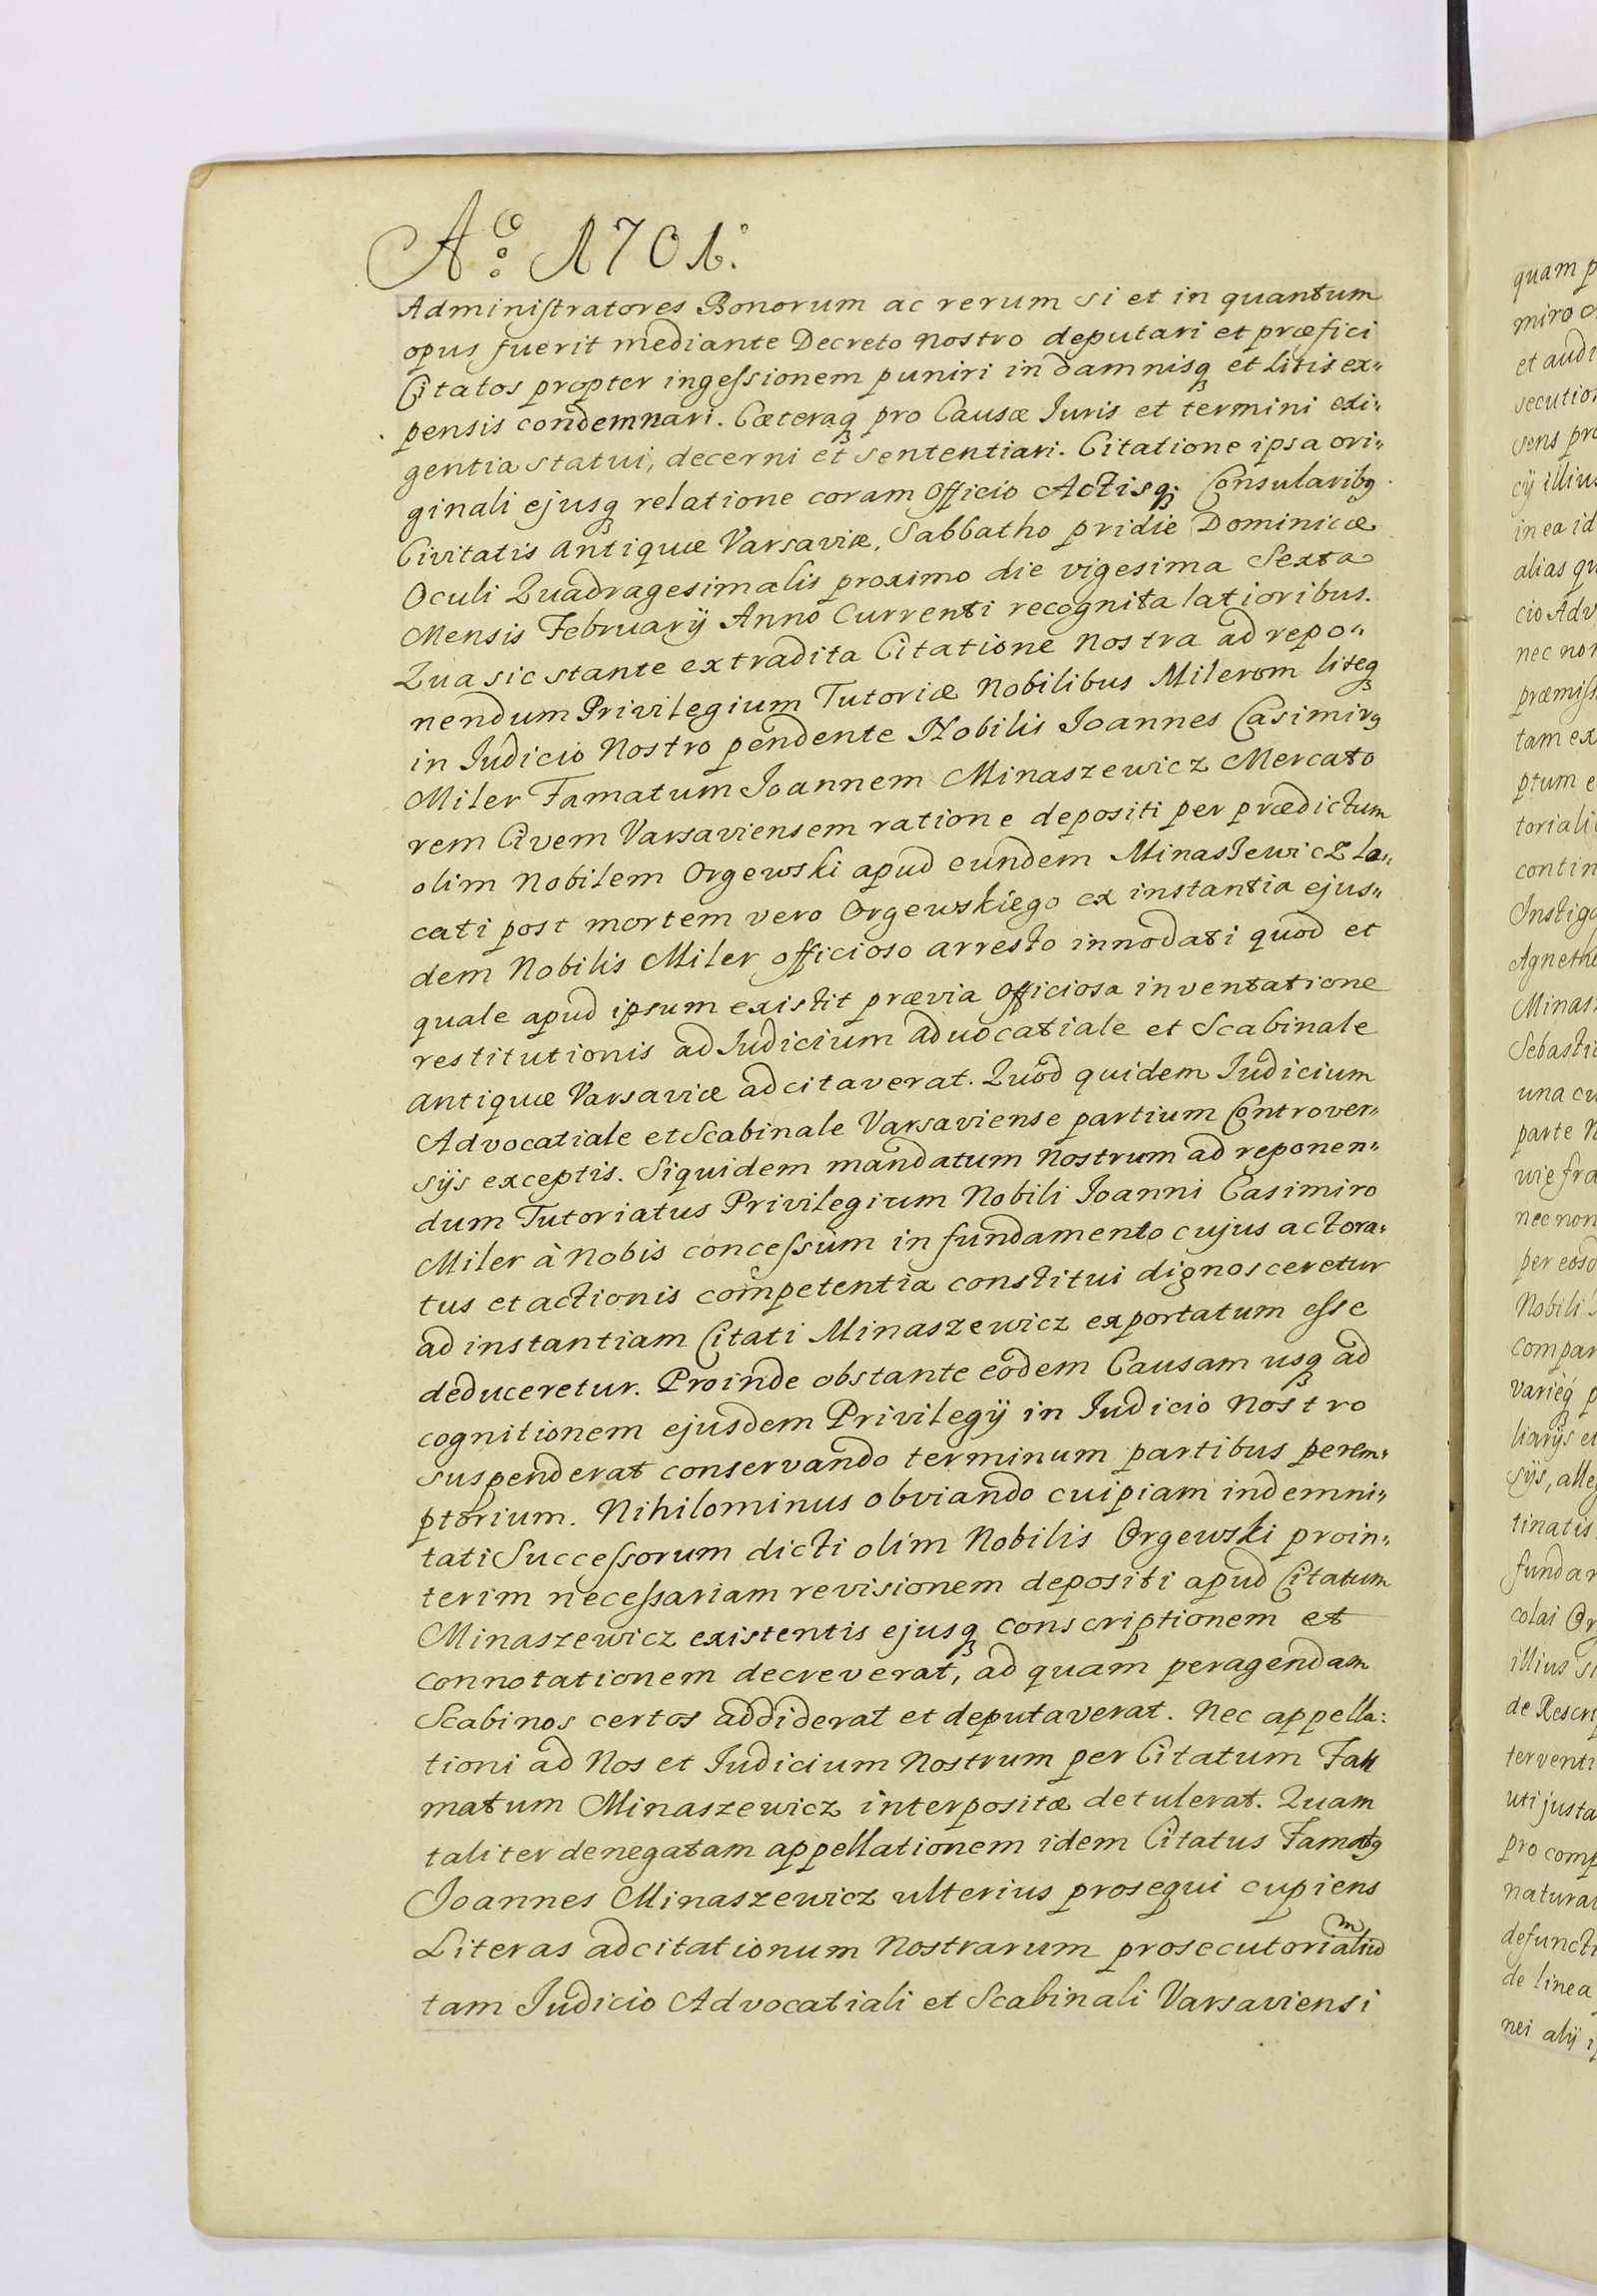 Aº 1701.
Administratores Bonorum ac rerum si et in quantum
opus fuerit mediante Decreto nostro deputari et præfici
Citatos propter ingessionem puniri in damnisq́ et Litis ex„
pensis condemnari. Cæteraq́ pro Causæ Iuris et termini exi„
gentia statui, decerni et sententiari. Citatione ipsa ori„
ginali ejusq́ relatione coram officio Actisq́ Consularibꝰ
Civitatis antiquæ Varsaviæ, Sabbatho pridie Dominicæ
Oculi Quadragesimalis proximo die vigesima Sexta
Mensis February Anno Currenti recognita latioribus.
Qua sic stante extradita Citatione nostra ad repo„
nendum Privilegium Tutoriæ Nobilibus Milerom liteq́
in Iudicio Nostro pendente Nobilis Ioannes Casimirꝰ
Miler Famatum Ioannem Minaszewicz Mercato
rem Civem Varsaviensem ratione depositi per prædictum
olim Nobilem Orgewski apud eundem Minaszewicz lo„
cati post mortem vero Orgewskiego ex instantia ejus„
dem Nobilis Miler officioso arresto innodati quod et
quale apud ipsum existit prævia officiosa inventatione
restitutionis ad Iudicium advocatiale et Scabinale
antiquæ Varsaviæ adcitaverat. Quod quidem Iudicium
Advocatiale et Scabinale Varsaviense partium Controver„
sijs exceptis. Siquidem mandatum nostrum ad reponen„
dum Tutoriatus Privilegium Nobili Ioanni Casimiro
Miler à nobis concessum in fundamento cujus actora„
tus et actionis competentia constitui dignosceretur
ad instantiam Citati Minaszewicz exportatum esse
deduceretur. Proinde obstante eodem Causam usq́ ad
cognitionem ejusdem Privilegij in Iudicio nostro
suspenderat conservando terminum partibus perem„
ptorium. Nihilominus obviando cuipiam indemni„
tati Successorum dicti olim Nobilis Orgewski proin„
terim necessariam revisionem depositi apud Citatum
Minaszewicz existentis ejusq́ conscriptionem et
connotationem decreverat, ad quam peragendam
Scabinos certos addiderat et deputaverat. Nec appella:
tioni ad Nos et Iudicium nostrum per Citatum Fa
matum Minaszewicz interpositæ detulerat. Quam
taliter denegatam appellationem idem Citatus Famatꝰ
Joannes Minaszewicz ulterius prosequi cupiens
Literas adcitationum nostrarum prosecutorialiũ
tam Judicio Advocatiali et Scabinali Varsaviensi
quam p
miro C
et audi
secution
sens pro
cij illius
in ea id
alias qu
cio Adv
nec non
præmiss
tam ex
ptum e
torialiq́
contin
Instiga
Agneth
Minas
Sebasti
una cu
parte N
wie fra
nec non
per eosd
Nobili
compar
varieq́ p
liarijs et
sijs, alle
tinatis
fundar
colai Or
illius si
de Rescri
terventi
uti justa
pro comp
natura
defuncti
de linea
nei alij i